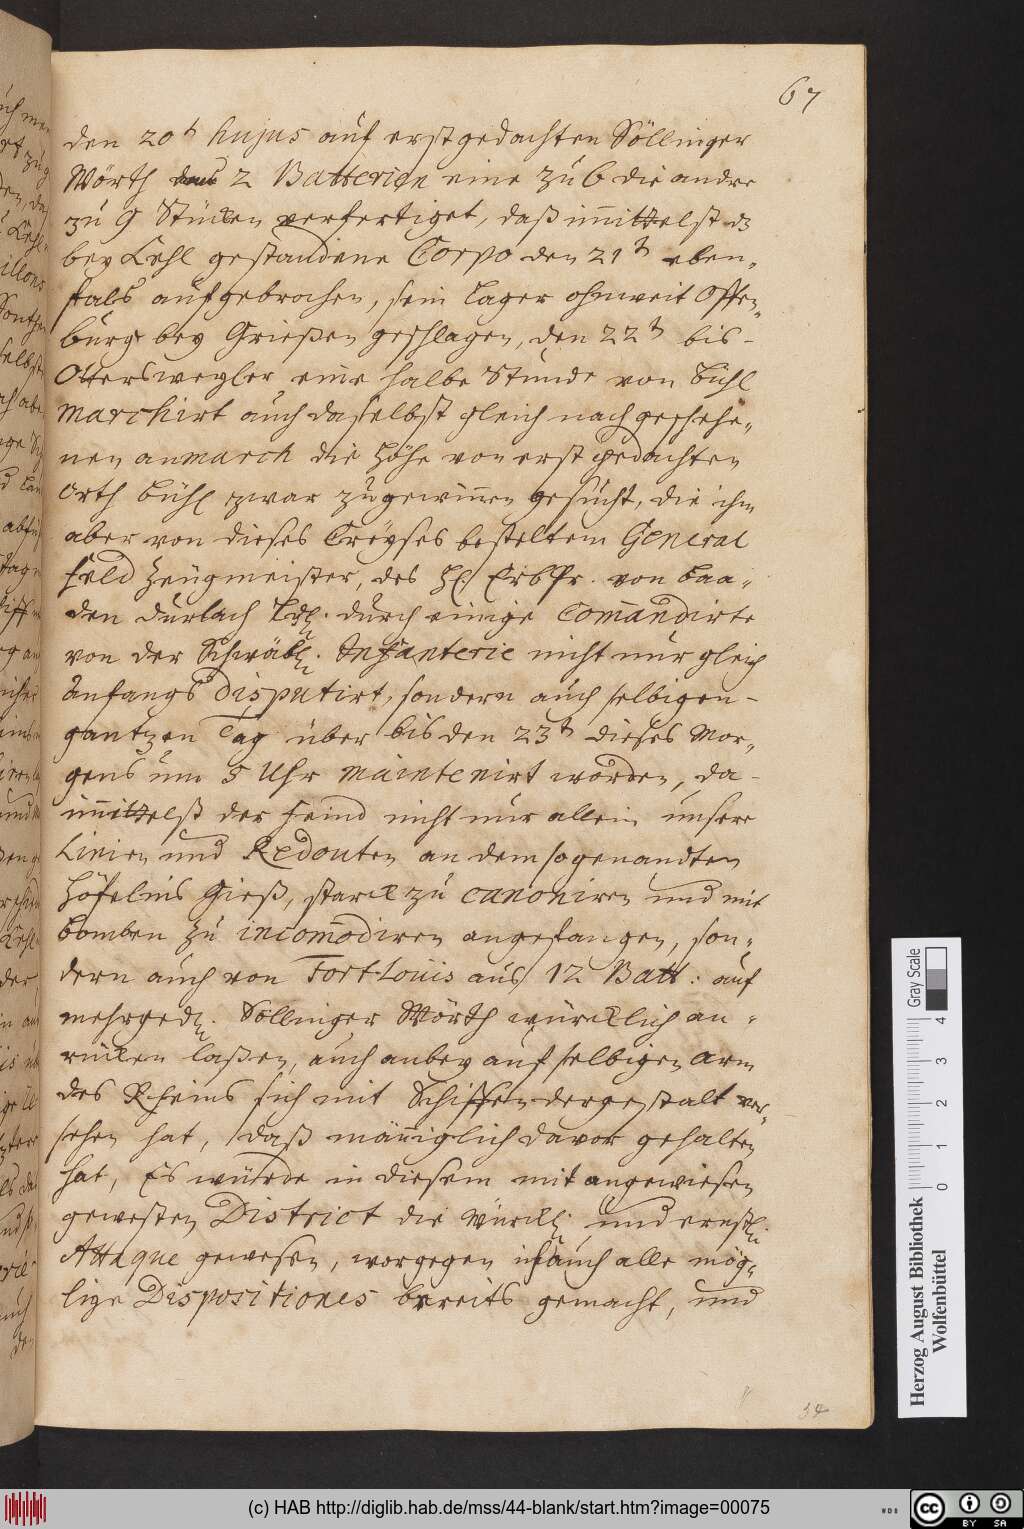 67
den 20t hujus auf erstgedachten Söllinger
Wörth 2 Batterien eine zu 6 die andre
zu 9 Stücken verfertiget, daß im̅ittelst dz
bey Kehl gestandene Corpo den 21t eben-
fals aufgebrochen, sein Lager ohnweit Offen-
burg bey Grießen geschlagen, den 22t bis-
Otterswegler eine halbe Stunde von Bühl
marchirt auch daselbst gleich nach geschehe-
nen anmarch die Höhe von erst gedachten
Orth Bühl zwar zugewin̅en gesucht, die ihm
aber von dieses Creyses besteltem General
Feld Zeugmeister, des H. Erbpr. von Baa-
den Durlach durch einige Com̅andirte
von der Schwäb. Infanterie nicht nur gleich
Anfangs disputirt, sondern auch selbigen-
gantzen Tag über bis den 23t dieses Mor-
gens um 5 Uhr maintenirt worden, da-
im̅ittelst der Feind nicht nur allein unsere
Linien und Redouten an dem sogenandten
Höfelins Gieß, starck zu canoniren und mit
Bomben zu incom̅odiren angefangen, son-
dern auch von Fort-Louis aus 12 Batt: auf
mehrged. Söllinger Wörth würcklich an-
rücken laßen, auch anbey auf selbigen Arm
des Rheins sich mit Schiffen dergestalt ver-
sehen hat, daß män̅iglich davor gehalten
hat, Es würde in diesem mit angewiesen
gewesten District die würckl. und ernstl.
Attaque gewesen, worgegen ich auch alle mög-
lige Dispositiones bereits gemacht, und
34
Gray Scale
4
3
2
1
0
Herzog August Bibliothek
Wolfenbüttel
(c) HAB http://diglib.hab.de/mss/44-blank/start.htm?image=00075
WDB
cc BY SA